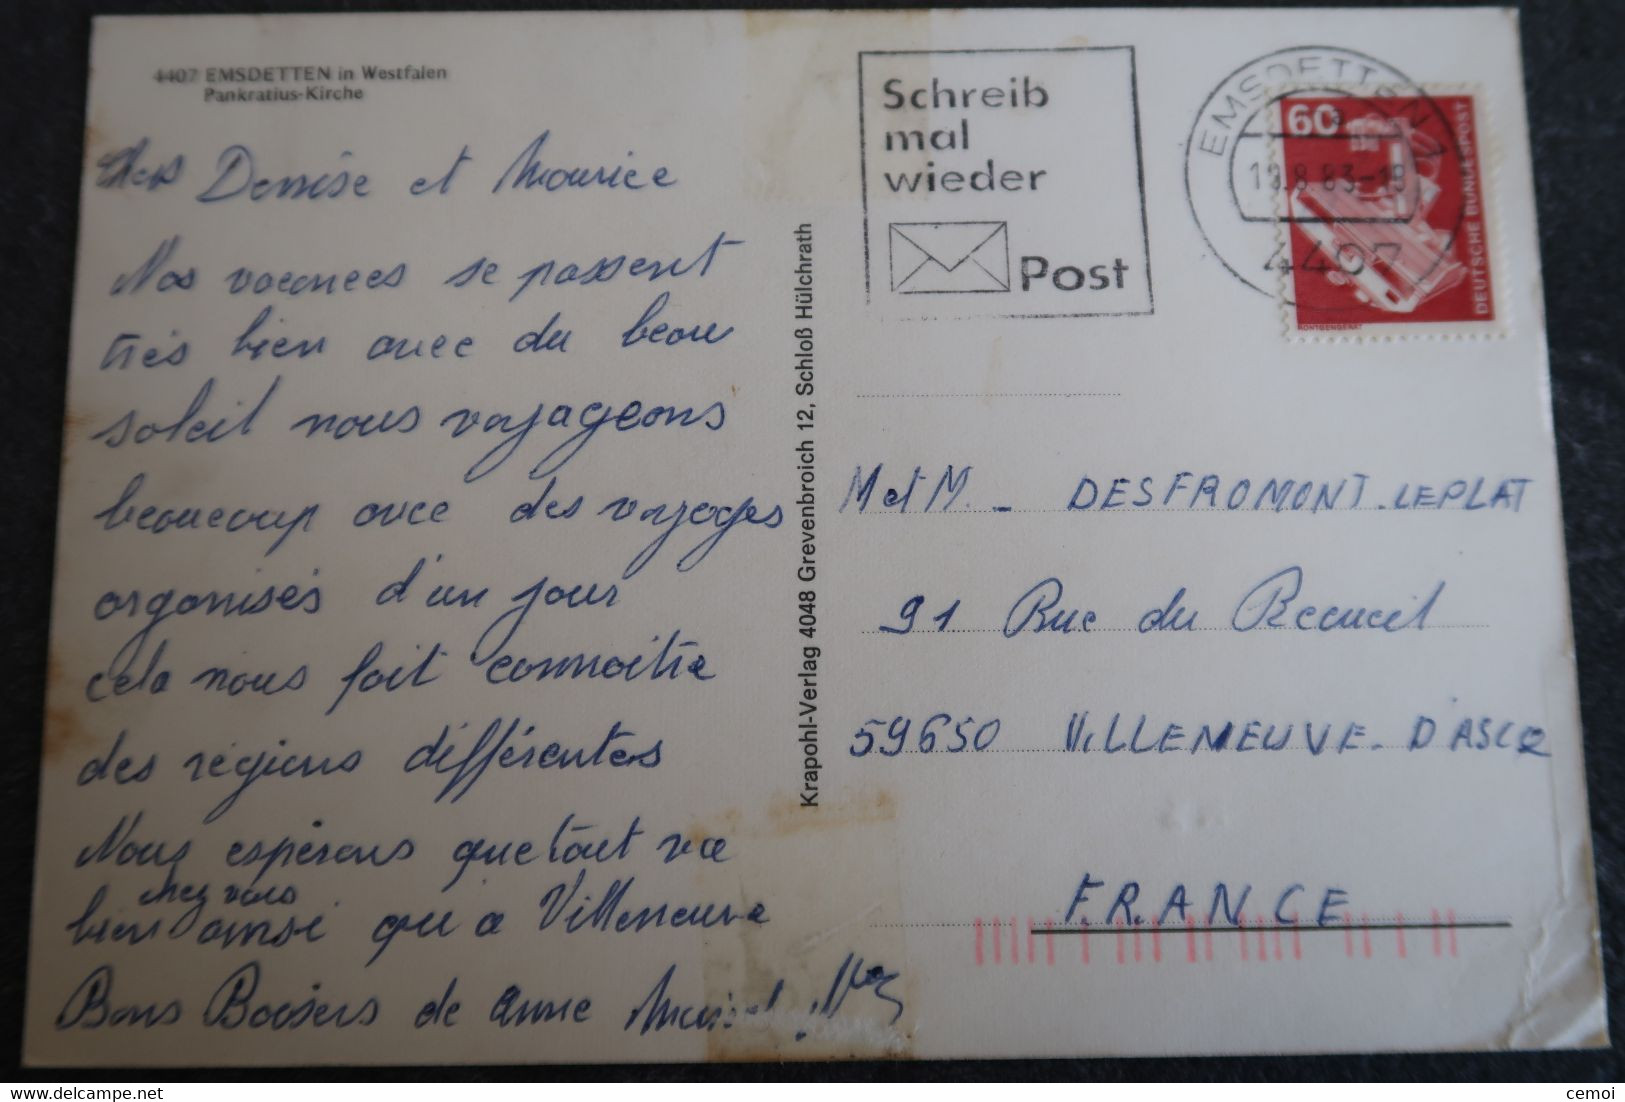 4407 EMSDETTEN in Westfalen
Pankratius-Kirche
Chers Denise et Maurice
Nos vacances se passent
très bien avec du beau
soleil nous voyageons
beaucoup avec des voyages
organisés d'un jour
cela nous fait connaitre
des régions différentes
Nous espérons que tout va
bien chez vous ainsi qu'a Villeneuve
Bons Baisers de Anne
Krapohl-Verlag 4048 Grevenbroich 12, Schloß Hülchrath
Schreib
mal
wieder
Post
EMSDETTEN 1
.8.83-19
4407
60
DEUTSCHE BUNDESPOST
RÖNTGENGERÄT
M et M. - DESFROMONT-LEPLAT
91 Rue du Recueil
59650 VILLENEUVE-D'ASCQ
F.R.ANCE
cemoi